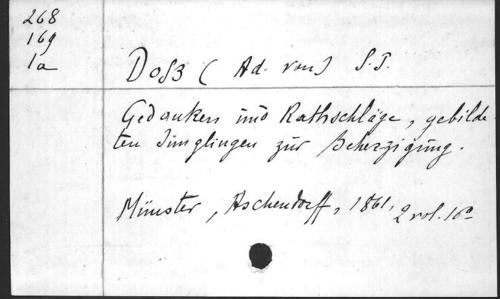 268
169
1a
Dosz (Ad. von) S.J.
Gedanken und Rathschläge, gebilde-
ten Jünglingen zur Beherzigung.
Münster, Aschendorff, 1861, 2 vol. 16°